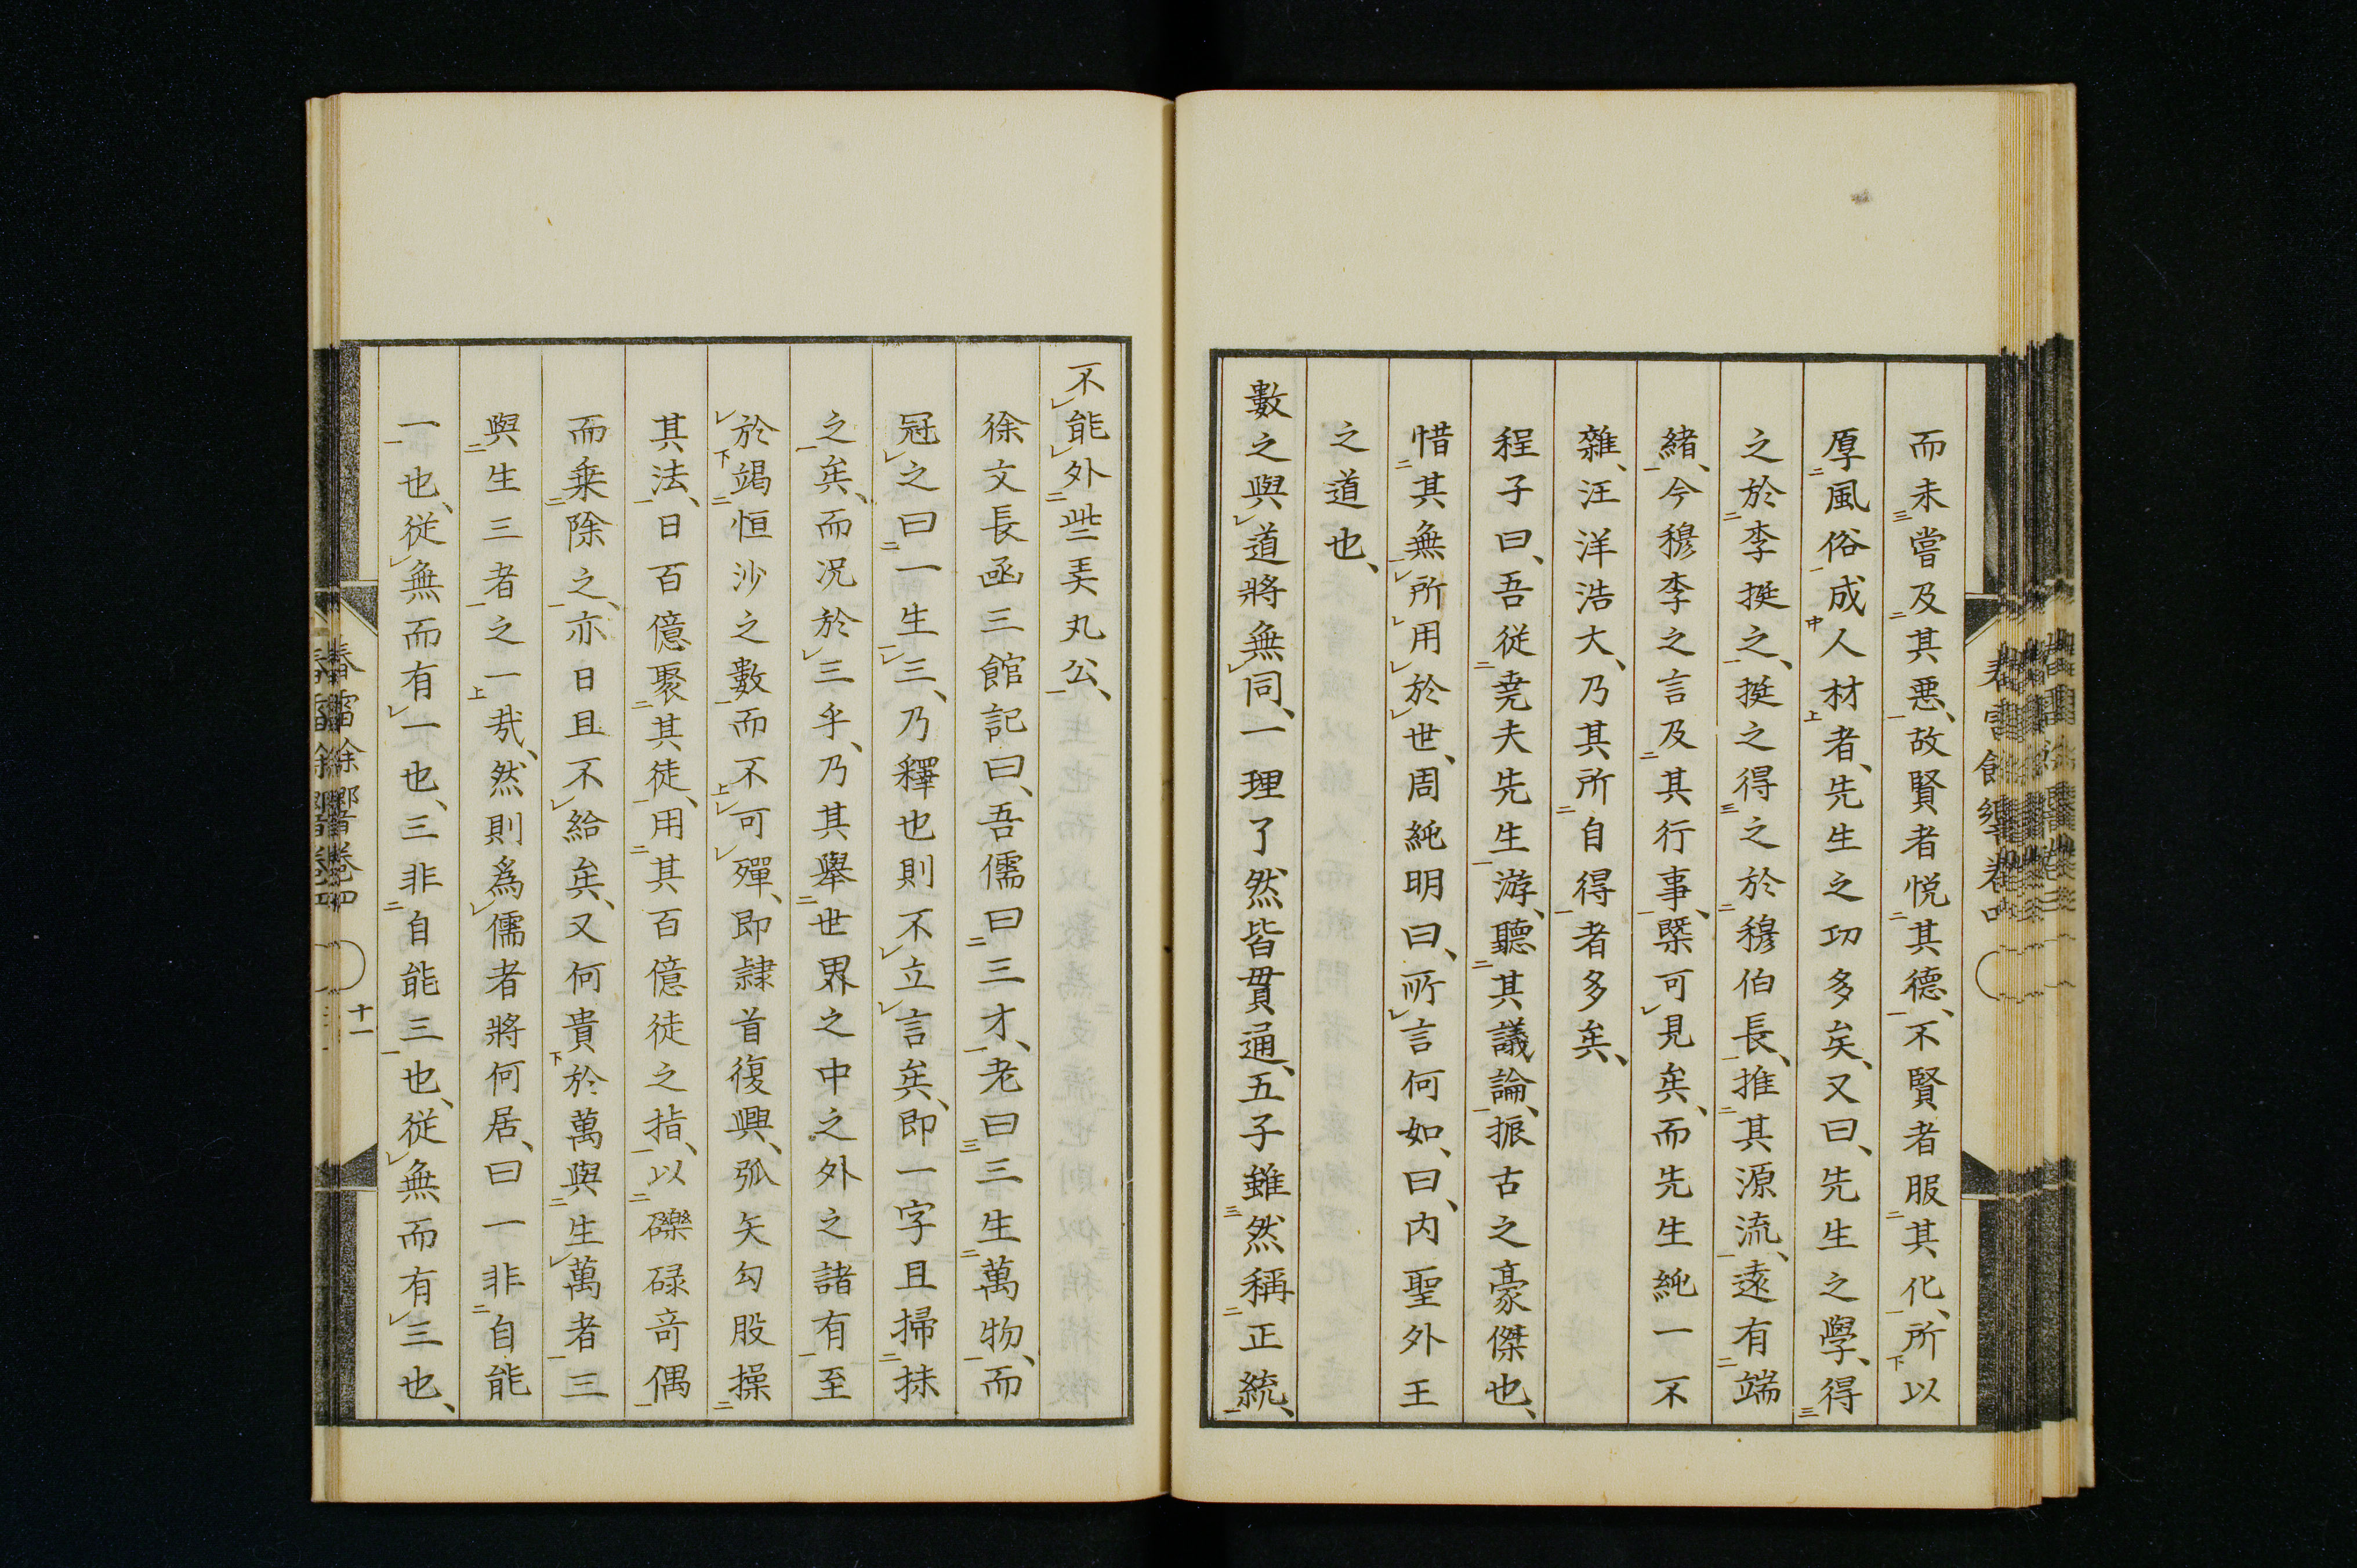 而未嘗及其惡、故賢者悅其德、不賢者服其化、所以
厚風俗成人材者、先生之功多矣、又曰、先生之學、得
之於李挺之、挺之得之於穆伯長、推其源流、遠有端
緒、今穆李之言及其行事、槩可見矣、而先生純一不
雜、汪洋浩大、乃其所自得者多矣、
程子曰、吾從堯夫先生游、聽其議論、振古之豪傑也、
惜其無所用於世、周純明曰、所言何如、曰、內聖外王
之道也、
數之與道將無同、一理了然皆貫通、五子雖然稱正統、
不能外些弄丸公、
徐文長函三館記曰、吾儒曰三才、老曰三生萬物、而
冠之曰一生三、乃釋也則不立言矣、即一字且掃抹
之矣、而況於三乎、乃其舉世界之中之外之諸有至
於竭恒沙之數而不可殫、即隷首復興、弧矢勾股操
其法、日百億聚其徒、用其百億徒之指、以礫碌奇偶
而乘除之、亦日且不給矣、又何貴於萬與生萬者三
與生三者之一哉、然則爲儒者將何居、曰一非自能
一也、從無而有一也、三非自能三也、從無而有三也、
春雷餘響卷四
十一